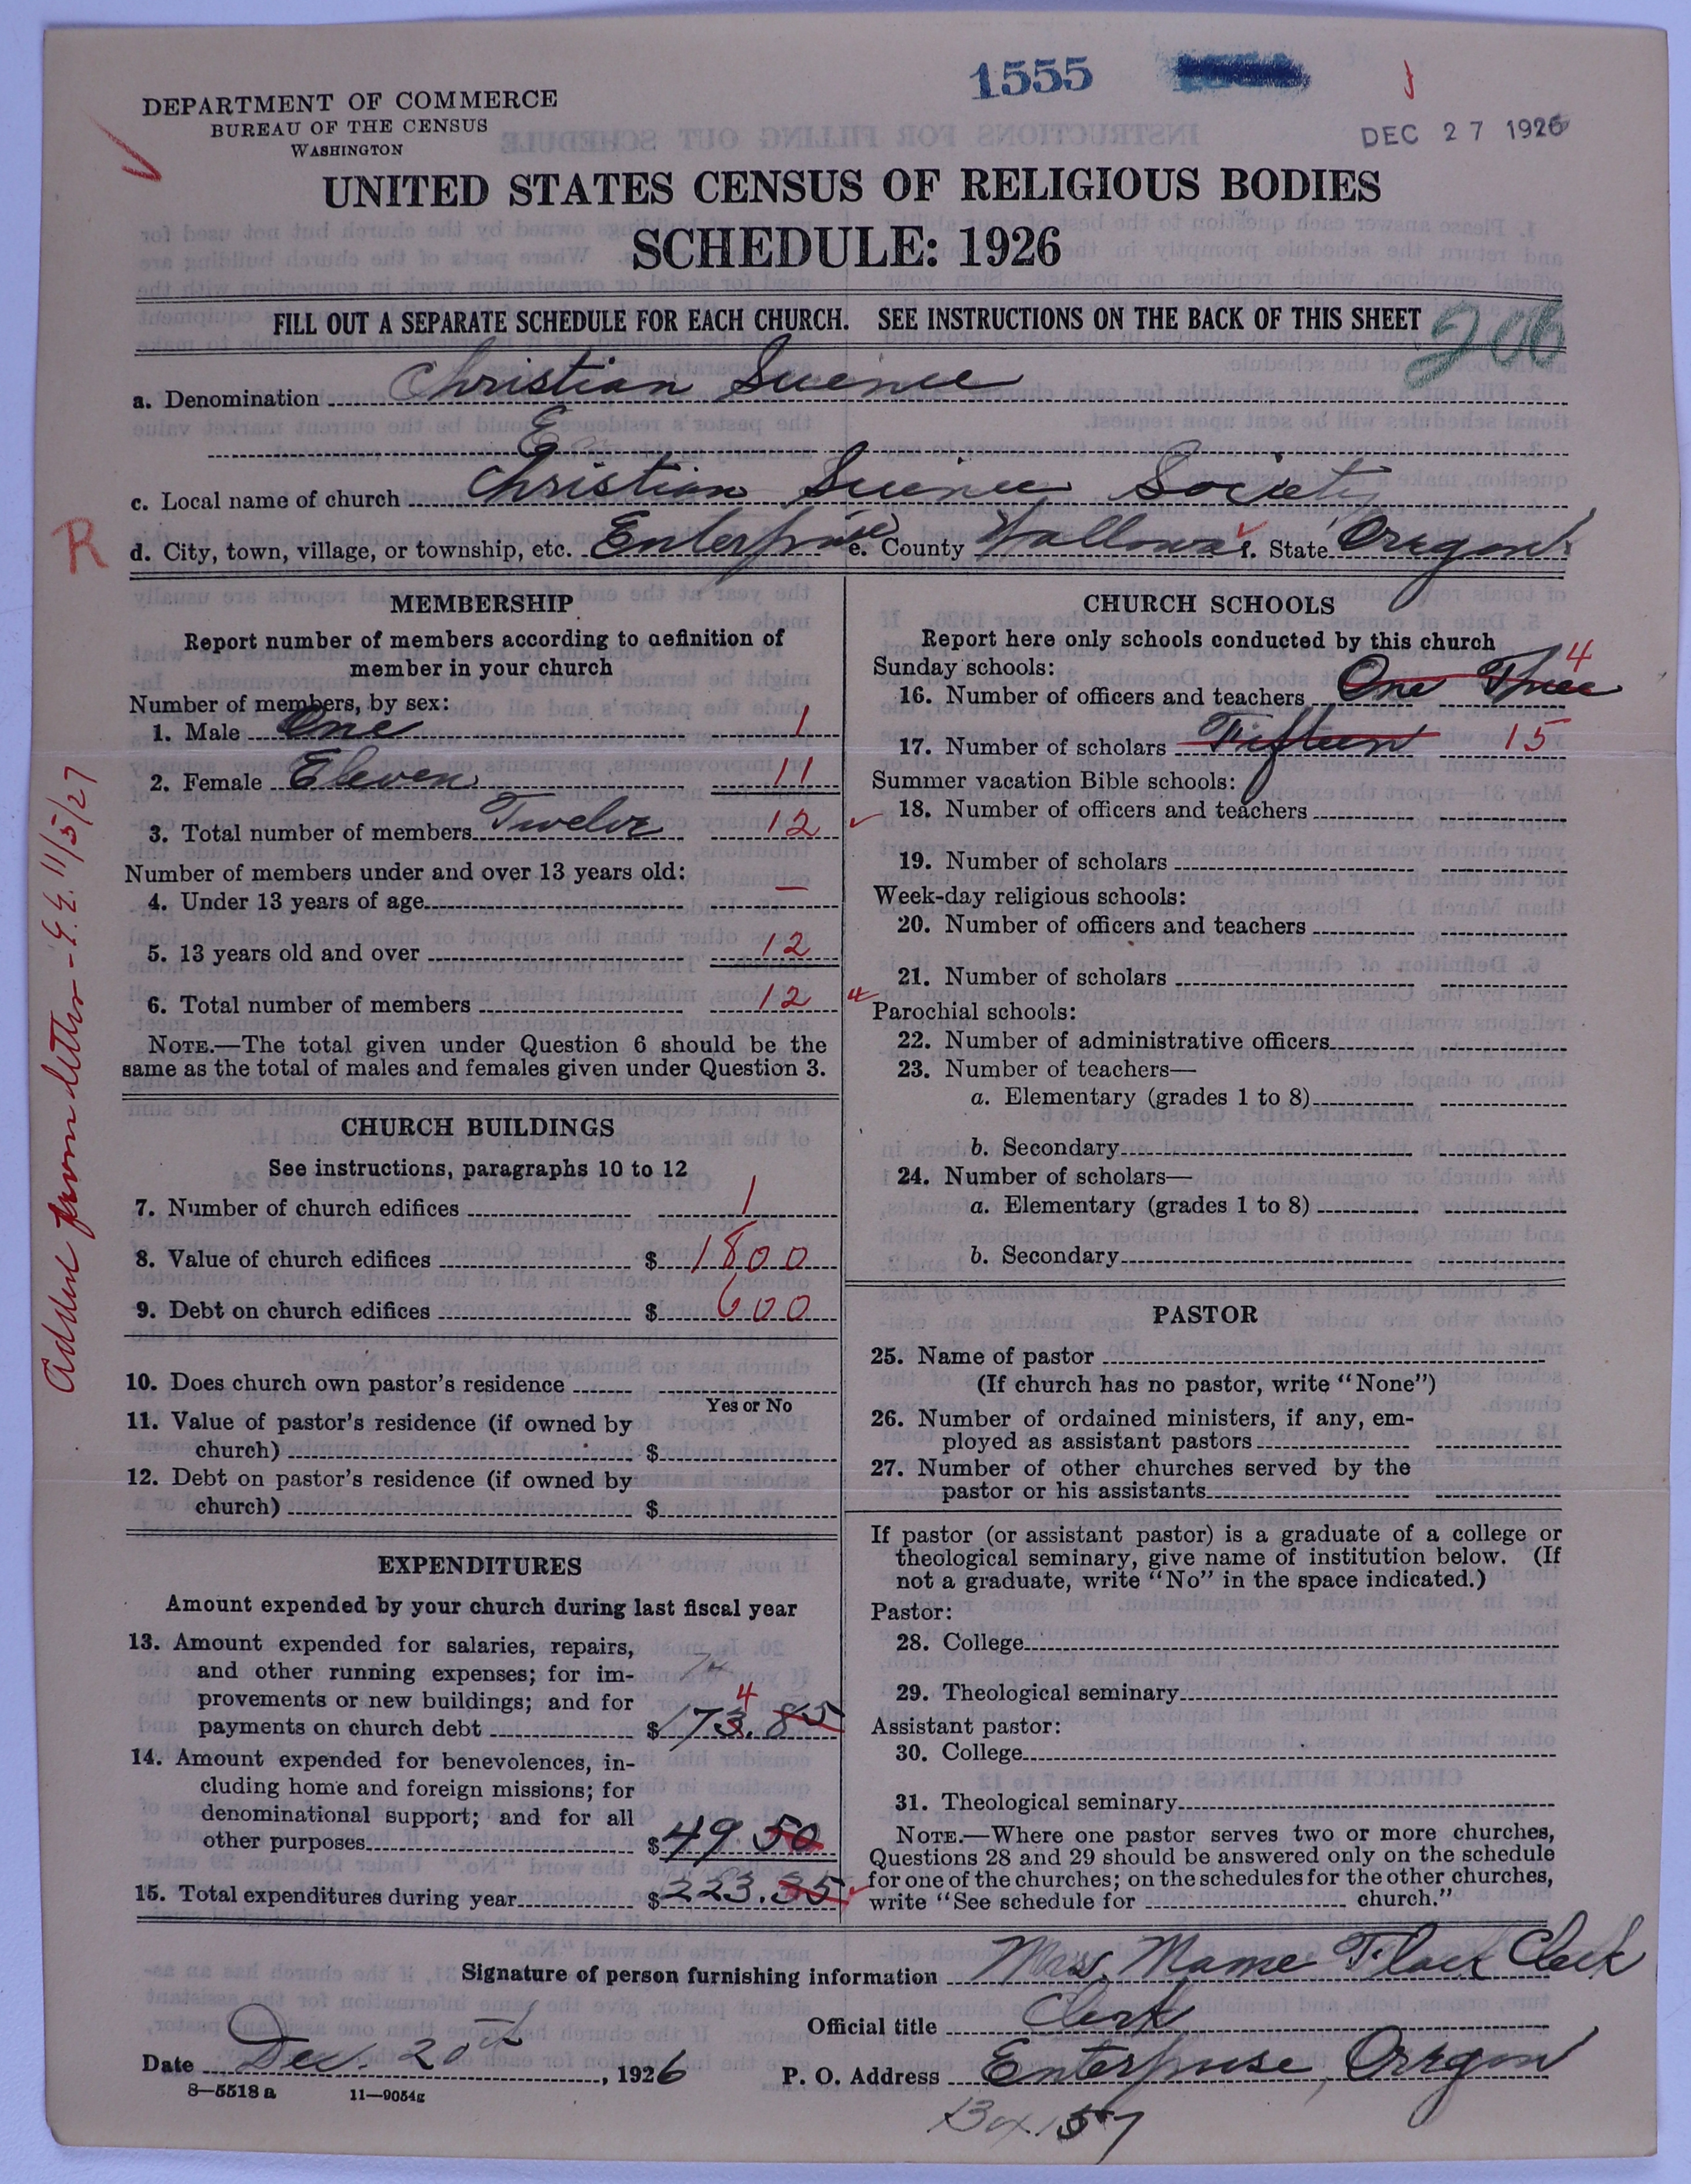 1555
DEC 27 1926
DEPARTMENT OF COMMERCE
BUREAU OF THE CENSUS
WASHINGTON
UNITED STATES CENSUS OF RELIGIOUS BODIES
SCHEDULE: 1926
FILL OUT A SEPARATE SCHEDULE FOR EACH CHURCH. SEE INSTRUCTIONS ON THE BACK OF THIS SHEET
206
a. Denomination Christian Science
c. Local name of church Christian Science Society
R
d. City, town, village, or township, etc. Enterprise e. County Wallowa f. State Oregon
MEMBERSHIP
Report number of members according to definition of
member in your church
Number of members, by sex:
1. Male One 1
2. Female Eleven 11
3. Total number of members Twelve 12
Number of members under and over 13 years old:
4. Under 13 years of age —
5. 13 years old and over 12
6. Total number of members 12
NOTE.—The total given under Question 6 should be the
same as the total of males and females given under Question 3.
CHURCH BUILDINGS
See instructions, paragraphs 10 to 12
7. Number of church edifices 1
8. Value of church edifices $ 1800
9. Debt on church edifices $ 600
10. Does church own pastor's residence
Yes or No
11. Value of pastor's residence (if owned by
church) $
12. Debt on pastor's residence (if owned by
church) $
EXPENDITURES
Amount expended by your church during last fiscal year
13. Amount expended for salaries, repairs,
and other running expenses; for im-
provements or new buildings; and for
4
payments on church debt $ 173.85
14. Amount expended for benevolences, in-
cluding home and foreign missions; for
denominational support; and for all
other purposes $ 49.50
15. Total expenditures during year $ 223.35
Added from letter - E.E. 11/5/27
CHURCH SCHOOLS
Report here only schools conducted by this church
Sunday schools:
4
16. Number of officers and teachers One Three
17. Number of scholars Fifteen 15
Summer vacation Bible schools:
18. Number of officers and teachers
19. Number of scholars
Week-day religious schools:
20. Number of officers and teachers
21. Number of scholars
Parochial schools:
22. Number of administrative officers
23. Number of teachers—
a. Elementary (grades 1 to 8)
b. Secondary
24. Number of scholars—
a. Elementary (grades 1 to 8)
b. Secondary
PASTOR
25. Name of pastor
(If church has no pastor, write "None")
26. Number of ordained ministers, if any, em-
ployed as assistant pastors
27. Number of other churches served by the
pastor or his assistants
If pastor (or assistant pastor) is a graduate of a college or
theological seminary, give name of institution below. (If
not a graduate, write "No" in the space indicated.)
Pastor:
28. College
29. Theological seminary
Assistant pastor:
30. College
31. Theological seminary
NOTE.—Where one pastor serves two or more churches,
Questions 28 and 29 should be answered only on the schedule
for one of the churches; on the schedules for the other churches,
write "See schedule for church."
Signature of person furnishing information Mrs. Mame Clerk
Official title Clerk
Date Dec. 20th, 1926 P. O. Address Enterprise, Oregon
8—5518 a 11—9054g
Box 157